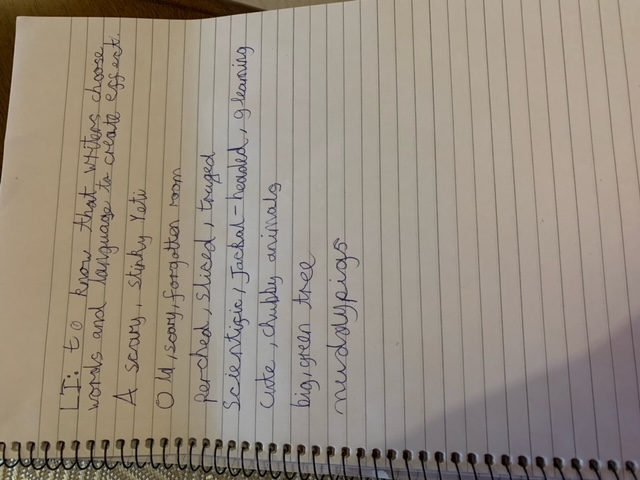 LI: to know that writers choose
words and language to create effect.
A scary, stinky Yeti
Old, scary, forgotten room
perched, sliced, truged
Scientific, Jackal-headed, gleaming
Cute, chubby animals
big, green tree
muddy pigs